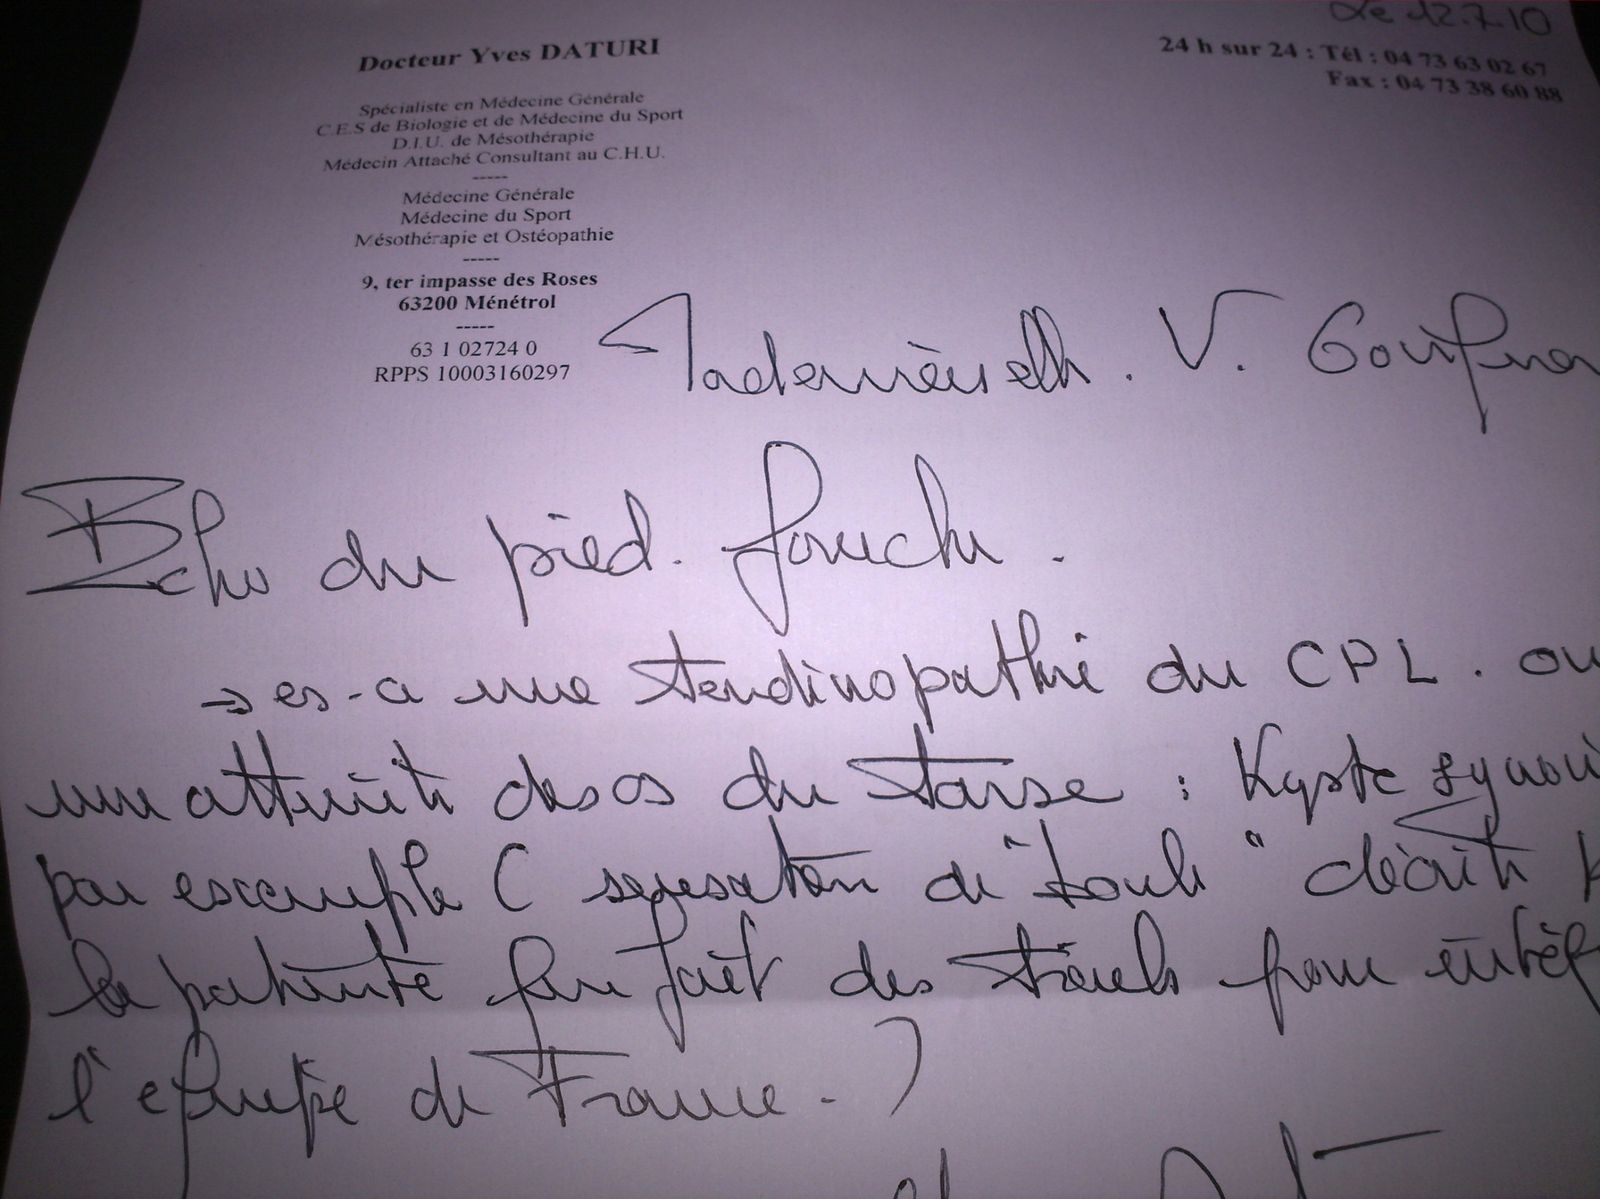 Le 12.7.10
Docteur Yves DATURI
24 h sur 24 : Tél : 04 73 63 02 67
Fax : 04 73 38 60 88
Spécialiste en Médecine Générale
C.E.S de Biologie et de Médecine du Sport
D.I.U. de Mésothérapie
Médecin Attaché Consultant au C.H.U.
-----
Médecine Générale
Médecine du Sport
Mésothérapie et Ostéopathie
-----
9, ter impasse des Roses
63200 Ménétrol
-----
63 1 02724 0
RPPS 10003160297
Mademoiselle. V.
Echo du pied. gauche.
→ es-a une tendinopathie du CPL. ou
une atteinte des os du tarse : Kyste synovi
par exemple ( sensation de "boule" décrite p
la patiente qui fait des trails pour intég
l'équipe de France. )